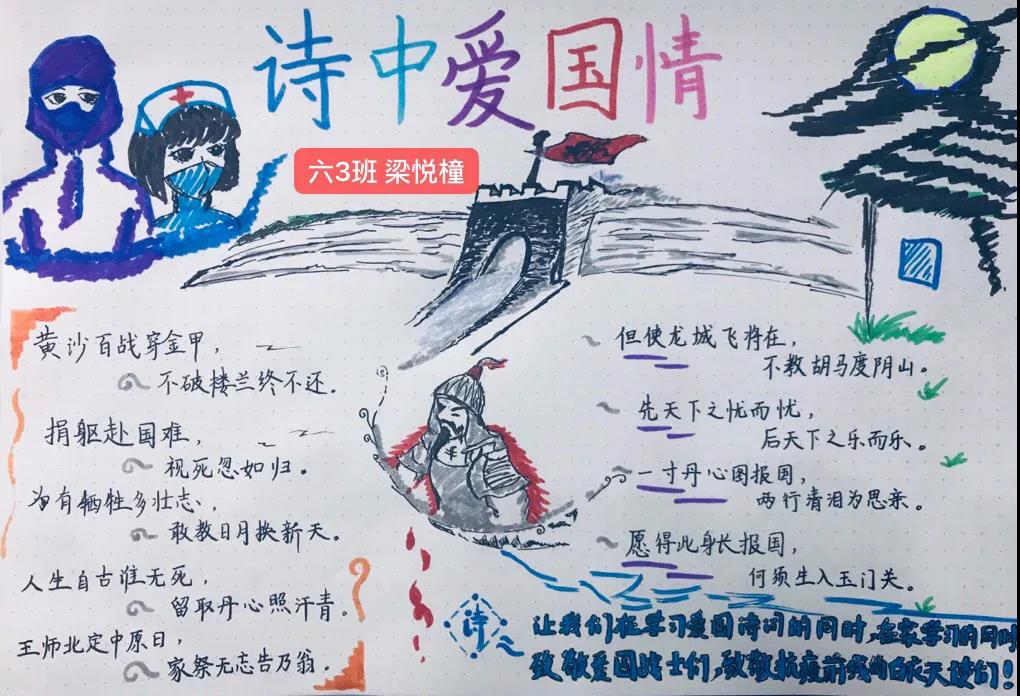 诗中爱国情
六3班 梁悦橦
黄沙百战穿金甲，
不破楼兰终不还。
捐躯赴国难，
视死忽如归。
为有牺牲多壮志，
敢教日月换新天。
人生自古谁无死，
留取丹心照汗青。
王师北定中原日，
家祭无忘告乃翁。
但使龙城飞将在，
不教胡马度阴山。
先天下之忧而忧，
后天下之乐而乐。
一寸丹心图报国，
两行清泪为思亲。
愿得此身长报国，
何须生入玉门关。
诗
让我们在学习爱国诗词的同时，在家学习的同时
致敬爱国战士们，致敬抗疫前线的白衣天使们！